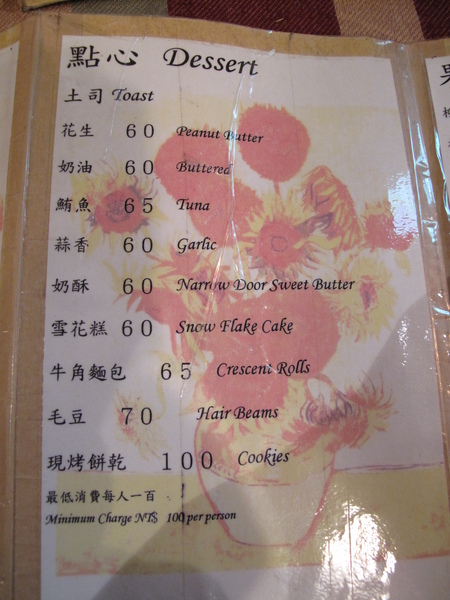 點心 Dessert
土司 Toast
花生 60 Peanut Butter
奶油 60 Buttered
鮪魚 65 Tuna
蒜香 60 Garlic
奶酥 60 Narrow Door Sweet Butter
雪花糕 60 Snow Flake Cake
牛角麵包 65 Crescent Rolls
毛豆 70 Hair Beams
現烤餅乾 100 Cookies
最低消費每人一百
Minimum Charge NT$ 100 per person